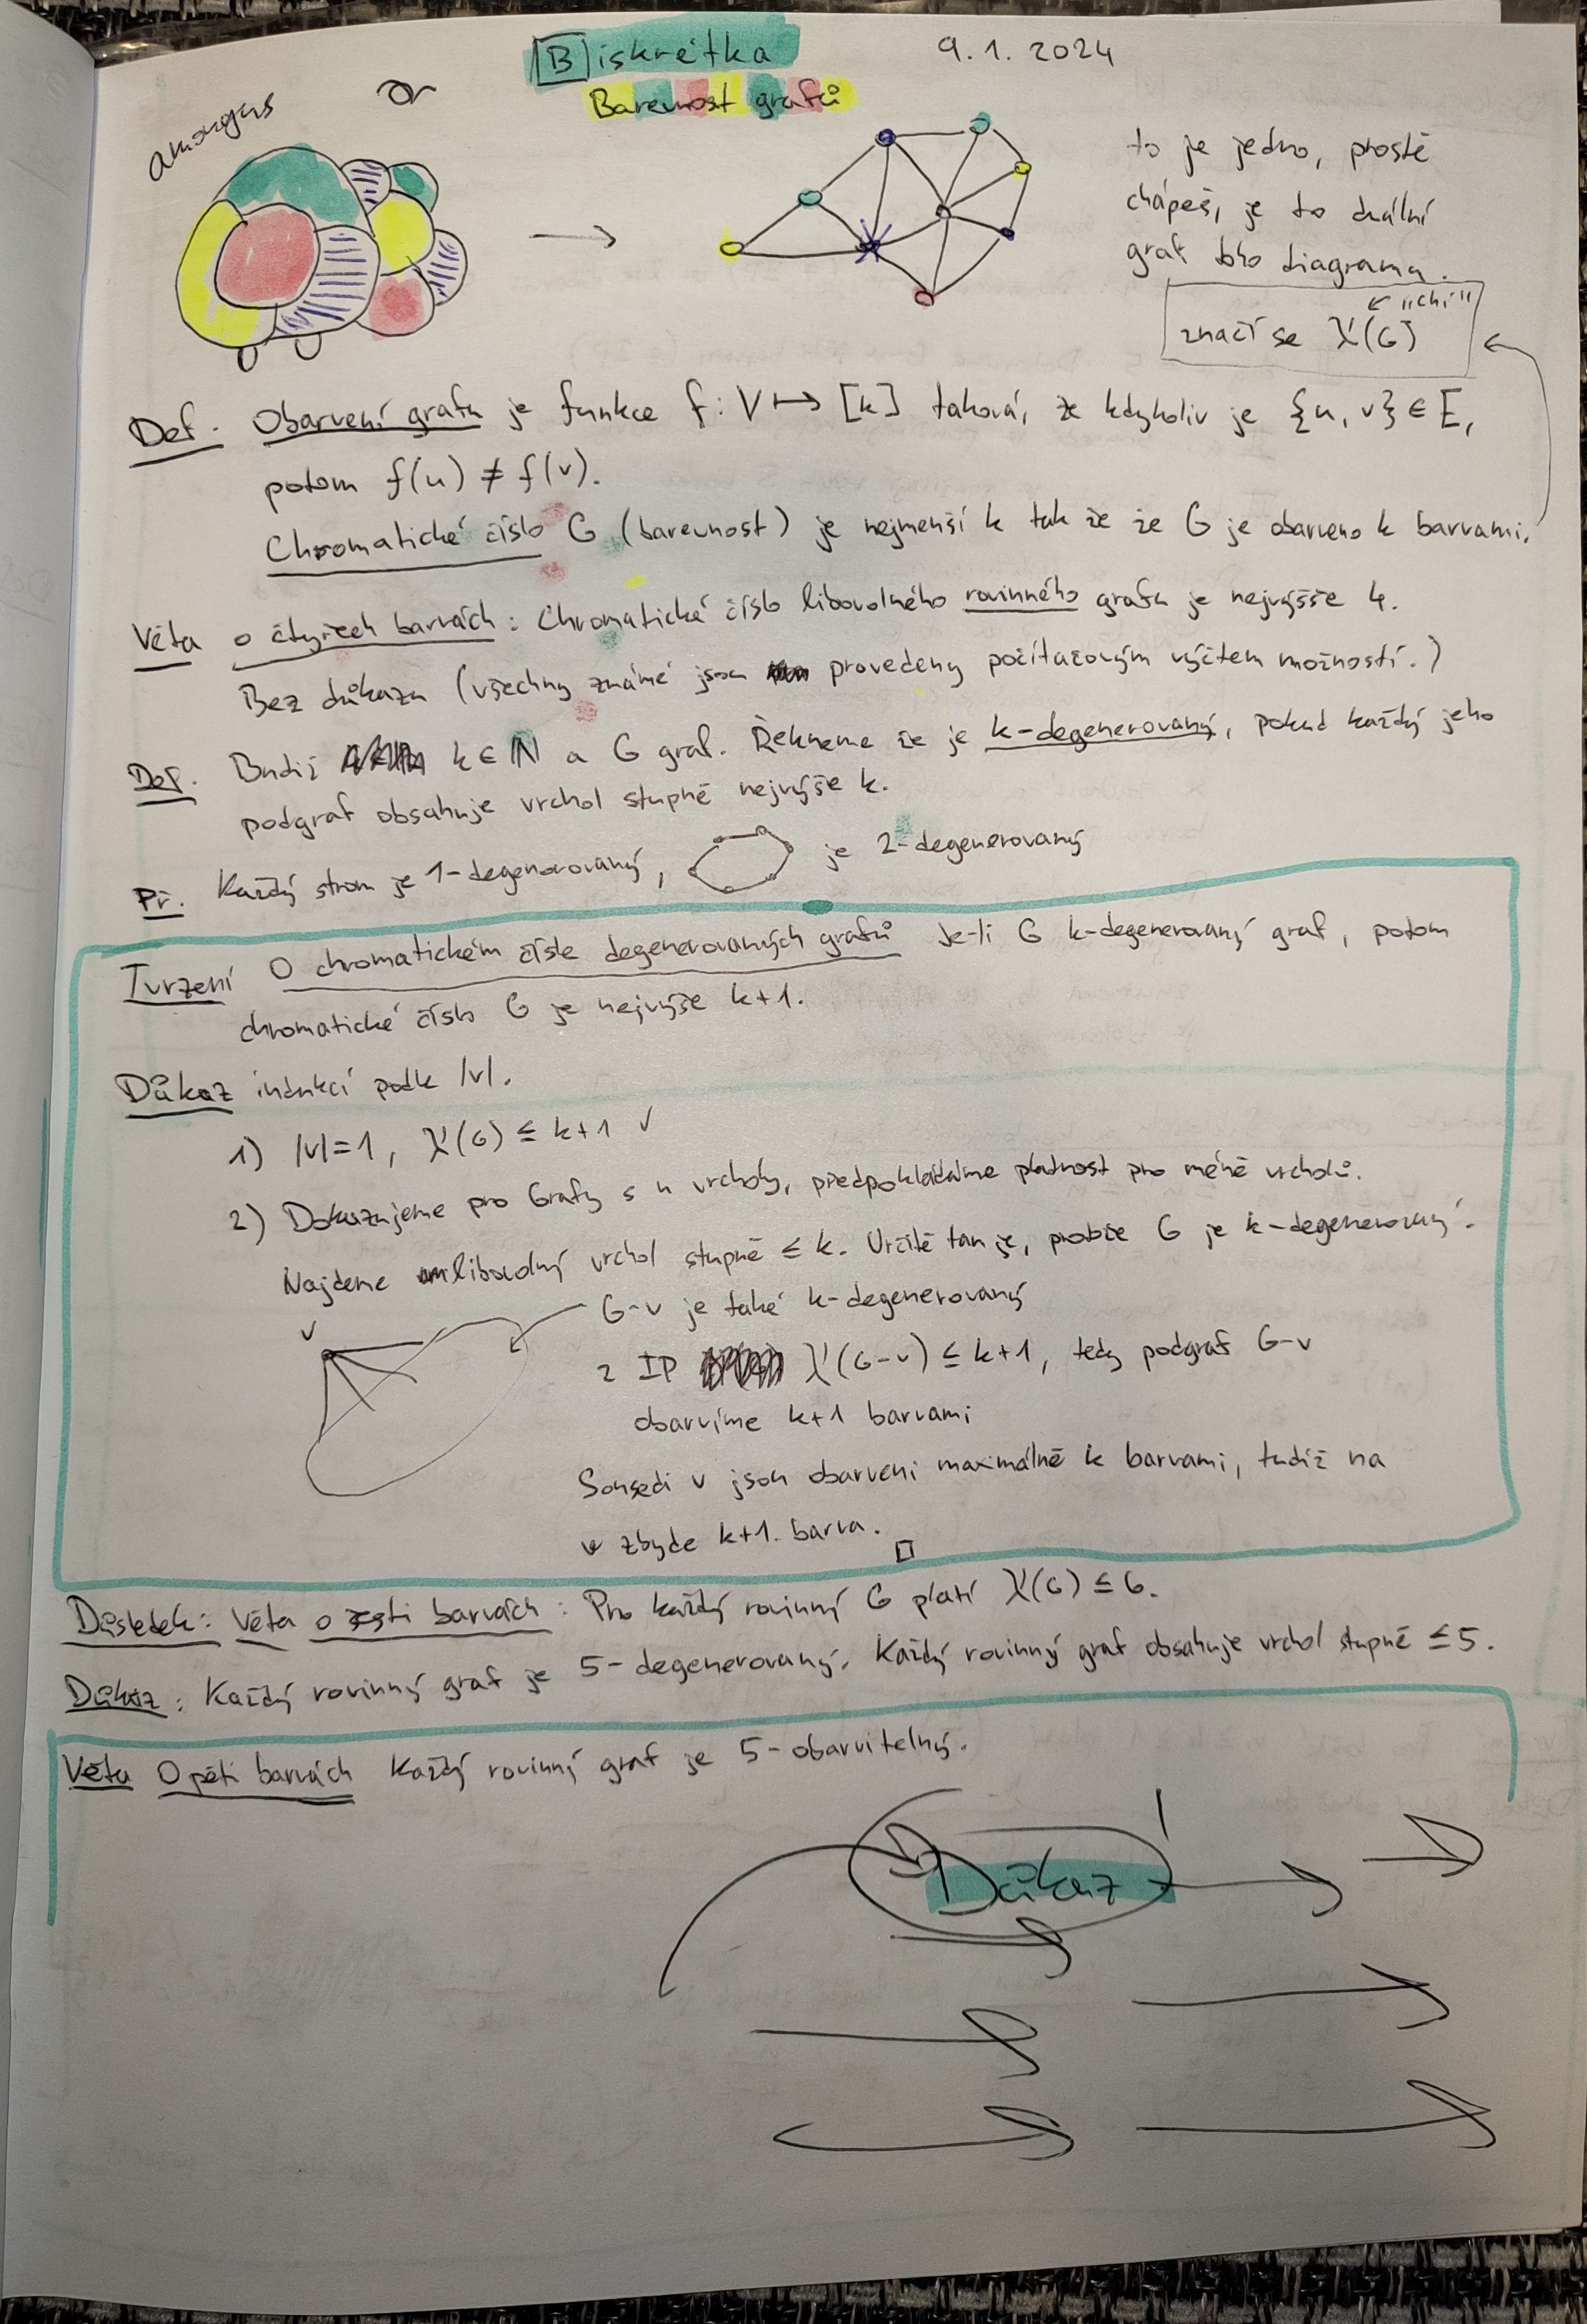 Biskrétka
9. 1. 2024
Barevnost grafů
amongus
to je jedno, prostě
chápeš, je to duální
graf toho diagramu.
"chí"
značí se χ(G)
Def. Obarvení grafu je funkce f: V ↦ [k] taková, že kdykoliv je {u, v} ∈ E,
potom f(u) ≠ f(v).
Chromatické číslo G (barevnost) je nejmenší k tak že že G je obarveno k barvami.
Věta o čtyřech barvách: Chromatické číslo libovolného rovinného grafu je nejvýšše 4.
Bez důkazu (všechny známé jsou provedeny počítačovým výčtem možností.)
Def. Budiž k ∈ ℕ a G graf. Řekneme že je k-degenerovaný, pokud každý jeho
podgraf obsahuje vrchol stupně nejvýše k.
Př. Každý strom je 1-degenerovaný, je 2-degenerovaný
Tvrzení O chromatickém čísle degenerovaných grafů Je-li G k-degenerovaný graf, potom
chromatické číslo G je nejvýše k+1.
Důkaz indukcí podle |V|.
1) |V|=1, χ(G) ≤ k+1 ✓
2) Dokazujeme pro Grafy s n vrcholy, předpokládáme platnost pro méně vrcholů.
Najdeme libovolný vrchol stupně ≤ k. Určitě tam je, protože G je k-degenerovaný.
G-v je také k-degenerovaný
v
z IP χ(G-v) ≤ k+1, tedy podgraf G-v
obarvíme k+1 barvami
Sousedi v jsou obarveni maximálně k barvami, tudíž na
v zbyde k+1. barva. □
Důsledek: Věta o šesti barvách: Pro každý rovinný G platí χ(G) ≤ 6.
Důkaz: Každý rovinný graf je 5-degenerovaný. Každý rovinný graf obsahuje vrchol stupně ≤ 5.
Věta O pěti barvách Každý rovinný graf je 5-obarvitelný.
Důkaz